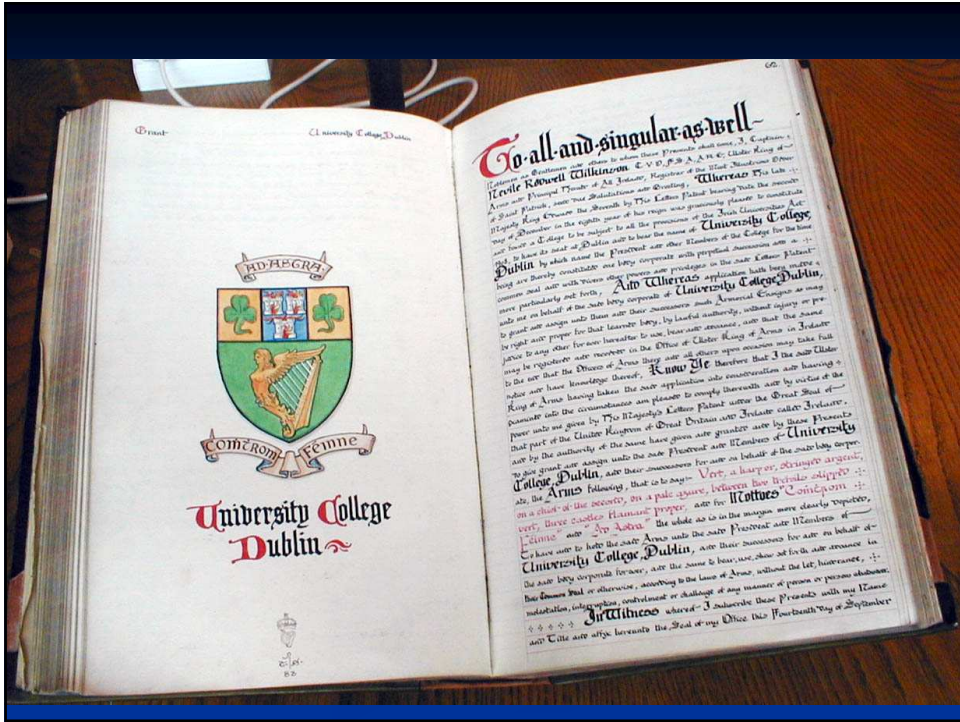 Grant
University College Dublin
AD·ASTRA·
Comtrom Féinne
University College
Dublin
62.
To·all·and·singular·as·well
Noblemen as Gentlemen and others to whom these Presents shall come, I, Captain
Nevile Rodwell Wilkinson C.V.O., F.S.A., A.R.E., Ulster King of
Arms and Principal Herald of All Ireland, Registrar of the Most Illustrious Order
of Saint Patrick, send due Salutations and Greeting, Whereas His late
Majesty King Edward the Seventh by His Letters Patent bearing date the second
day of December in the eighth year of his reign was graciously pleased to constitute
and found a College to be subject to all the provisions of the Irish Universities Act
1908, to have its seat at Dublin and to bear the name of University College,
Dublin by which name the President and other Members of the College for the time
being are thereby constituted one body corporate with perpetual succession and a
common seal and with divers other powers and privileges in the said Letters Patent
more particularly set forth, And Whereas application hath been made
unto me on behalf of the said body corporate of University College, Dublin,
to grant and assign unto them and their successors such Armorial Ensigns as may
be right and proper for that learned body, by lawful authority, without injury or pre-
judice to any other for ever hereafter to use, bear and advance, and that the same
may be registered and recorded in the Office of Ulster King of Arms in Ireland
to the end that the Officers of Arms there and all others upon occasion may take full
notice and have knowledge thereof, Know Ye therefore that I the said Ulster
King of Arms having taken the said application into consideration and having
examined into the circumstances am pleased to comply therewith and by virtue of the
power unto me given by His Majesty's Letters Patent under the Great Seal of
that part of the United Kingdom of Great Britain and Ireland called Ireland,
and by the authority of the same have given and granted and by these Presents
do give grant and assign unto the said President and Members of University
College, Dublin, and their successors for and on behalf of the said body corpor-
ate, the Arms following, that is to say:- Vert, a harp or, stringed argent,
on a chief of the second, on a pale azure, between two trefoils slipped
vert, three castles flamant proper, and for Mottoes "Comtrom
Féinne" and "Ad Astra" the whole as is in the margin more clearly depicted,
To have and to hold the said Arms unto the said President and Members of
University College, Dublin, and their successors for and on behalf of
the said body corporate for ever, and the same to bear, use, show set forth and advance in
their Common Seal or otherwise, according to the laws of Arms, without the let, hindrance,
molestation, interruption, controlment or challenge of any manner of person or persons whatsoever.
In Witness whereof I subscribe these Presents with my Name
and Title and affix hereunto the Seal of my Office this Fourteenth day of September